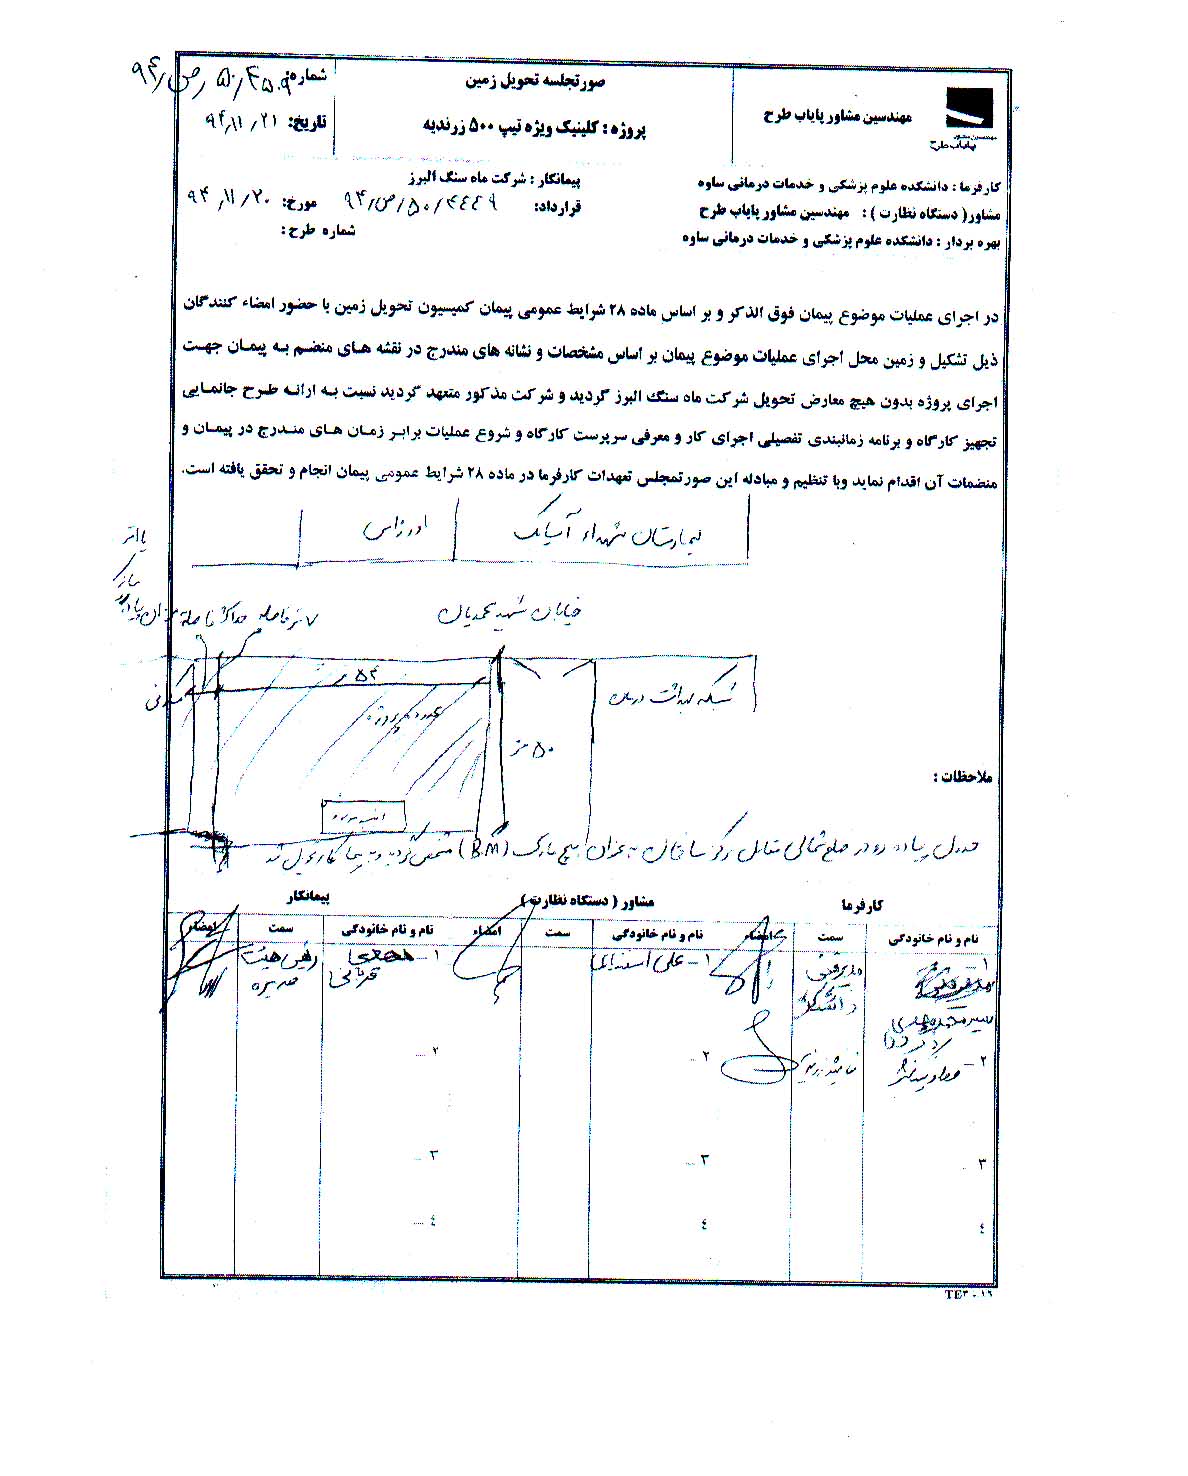 مهندسین مشاور پایاب طرح
مهندسین مشاور
پایاب طرح
صورتجلسه تحویل زمین
پروژه : کلینیک ویژه تیپ ۵۰۰ زرندیه
شماره: ۹۴/ص/۵۰/۴۵۰۹
تاریخ: ۹۴/۱۱/۲۱
کارفرما : دانشکده علوم پزشکی و خدمات درمانی ساوه
مشاور( دستگاه نظارت ) : مهندسین مشاور پایاب طرح
بهره بردار : دانشکده علوم پزشکی و خدمات درمانی ساوه
پیمانکار : شرکت ماه سنگ البرز
قرارداد: ۹۴/ص/۵۰/۴۴۴۹ مورخ: ۹۴/۱۱/۲۰
شماره طرح :
در اجرای عملیات موضوع پیمان فوق الذکر و بر اساس ماده ۲۸ شرایط عمومی پیمان کمیسیون تحویل زمین با حضور امضاء کنندگان
ذیل تشکیل و زمین محل اجرای عملیات موضوع پیمان بر اساس مشخصات و نشانه های مندرج در نقشه های منضم به پیمان جهت
اجرای پروژه بدون هیچ معارض تحویل شرکت ماه سنگ البرز گردید و شرکت مذکور متعهد گردید نسبت به ارائه طرح جانمایی
تجهیز کارگاه و برنامه زمانبندی تفصیلی اجرای کار و معرفی سرپرست کارگاه و شروع عملیات برابر زمان های مندرج در پیمان و
منضمات آن اقدام نماید وبا تنظیم و مبادله این صورتمجلس تعهدات کارفرما در ماده ۲۸ شرایط عمومی پیمان انجام و تحقق یافته است.
بیمارستان شهداء آسیابک
اورژانس
خیابان شهید محمدیان
۷ متر فاصله حداکثر فاصله
شبکه بهداشت درمان
۵۴
محدوده پروژه
۵۰ متر
ملاحظات :
جدول پیاده رو در ضلع شمالی مقابل مرکز ساختمان به عنوان بنچ مارک (B.M) مشخص گردید و به پیمانکار تحویل شد
کارفرما
مشاور ( دستگاه نظارت )
پیمانکار
نام و نام خانوادگی سمت امضاء نام و نام خانوادگی سمت امضاء نام و نام خانوادگی سمت امضاء
۱
سید محمد مهدی
مدیر فنی
دانشکده
۱- علی اسفندیاری
۱- مهدی
قربانی
رئیس هیئت
مدیره
۲-
نماینده
۲ ...
۲ ...
۳ ..
۳ ...
۳ ...
٤
٤
٤ ...
TE۳ - ۱۶